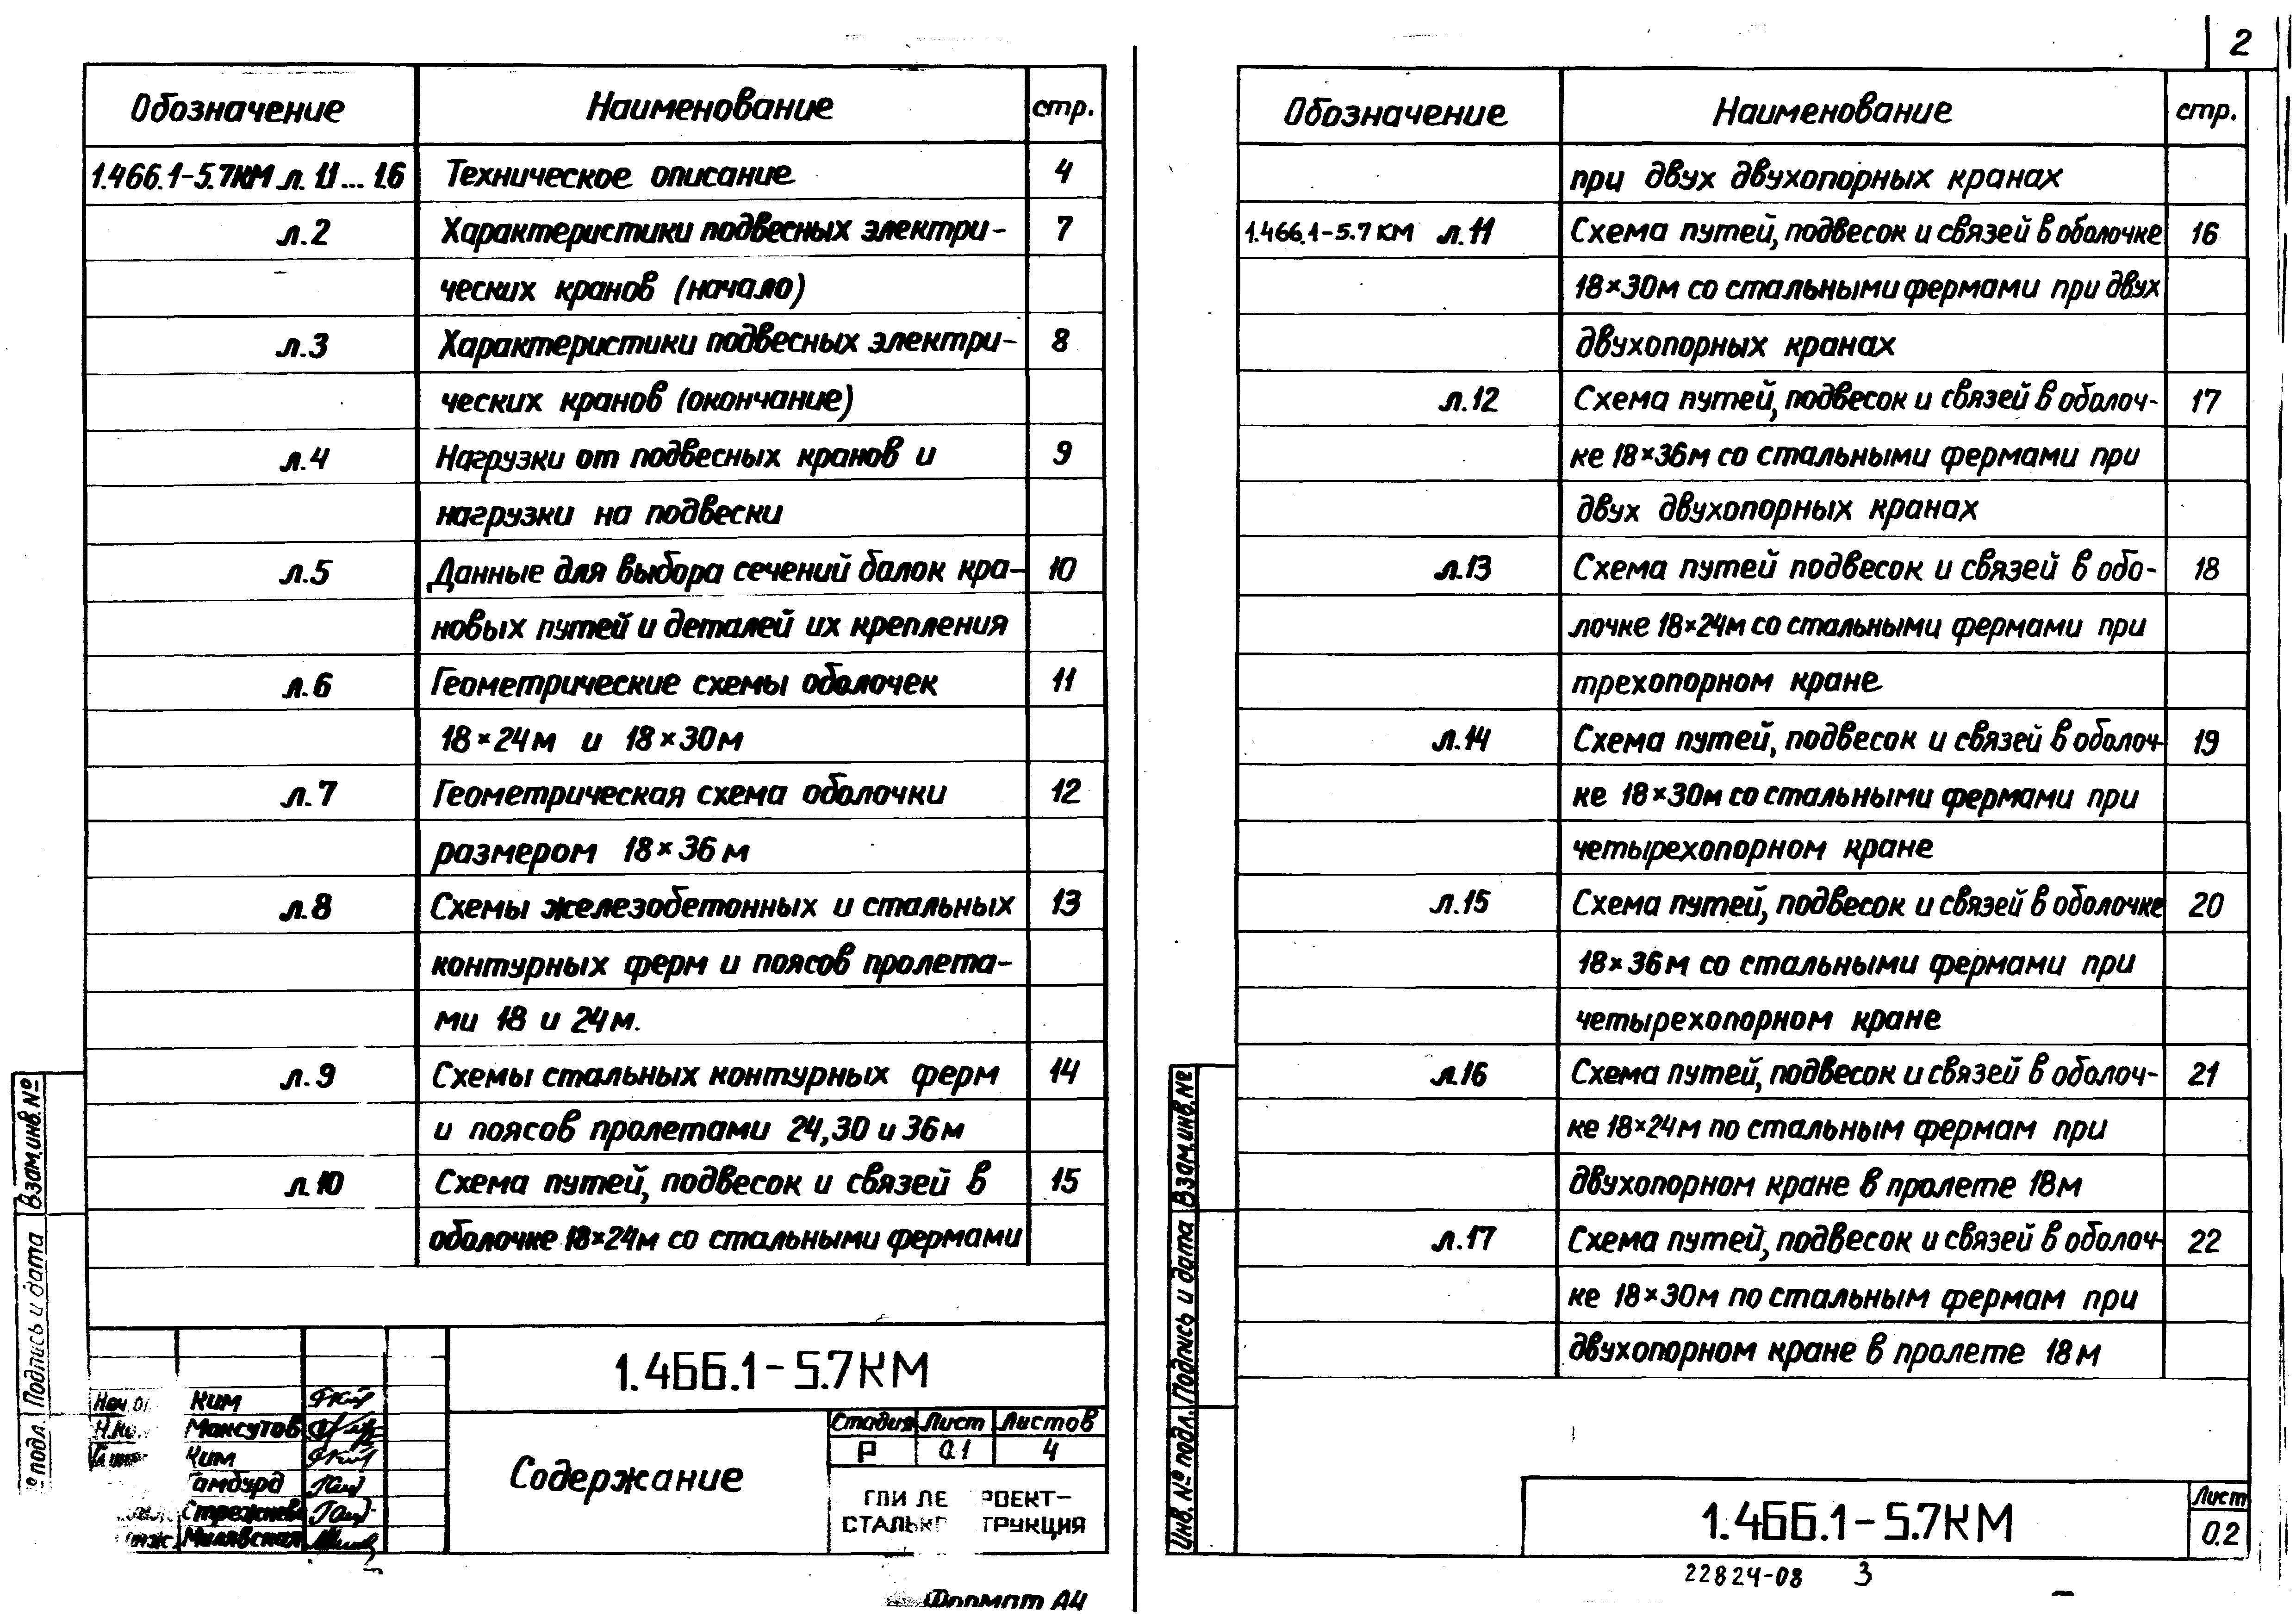 Обозначение Наименование стр.
1.466.1-5.7КМ л. 1.1 ... 1.6 Техническое описание 4
л.2 Характеристики подвесных электри- 7
ческих кранов (начало)
л.3 Характеристики подвесных электри- 8
ческих кранов (окончание)
л.4 Нагрузки от подвесных кранов и 9
нагрузки на подвески
л.5 Данные для выбора сечений балок кра- 10
новых путей и деталей их крепления
л.6 Геометрические схемы оболочек 11
18×24м и 18×30м
л.7 Геометрическая схема оболочки 12
размером 18×36м
л.8 Схемы железобетонных и стальных 13
контурных ферм и поясов пролета-
ми 18 и 24м.
л.9 Схемы стальных контурных ферм 14
и поясов пролетами 24,30 и 36м
л.10 Схема путей, подвесок и связей в 15
оболочке 18×24м со стальными фермами
1.466.1-5.7КМ
Ким
Н.ко Максутов
Ким
Гамбурд
Стрежнева
Милявская
Содержание
Стадия Лист Листов
Р 0.1 4
ГПИ ЛЕ РОЕКТ-
СТАЛЬК ТРУКЦИЯ
Взам.инв.№
Подпись и дата
№ подл.
Формат А4
2
Обозначение Наименование стр.
при двух двухопорных кранах
1.466.1-5.7КМ л.11 Схема путей, подвесок и связей в оболочке 16
18×30м со стальными фермами при двух
двухопорных кранах
л.12 Схема путей, подвесок и связей в оболоч- 17
ке 18×36м со стальными фермами при
двух двухопорных кранах
л.13 Схема путей подвесок и связей в обо- 18
лочке 18×24м со стальными фермами при
трехопорном кране
л.14 Схема путей, подвесок и связей в оболоч- 19
ке 18×30м со стальными фермами при
четырехопорном кране
л.15 Схема путей, подвесок и связей в оболочке 20
18×36м со стальными фермами при
четырехопорном кране
л.16 Схема путей, подвесок и связей в оболоч- 21
ке 18×24м по стальным фермам при
двухопорном кране в пролете 18м
л.17 Схема путей, подвесок и связей в оболоч- 22
ке 18×30м по стальным фермам при
двухопорном кране в пролете 18м
Взам.инв.№
Подпись и дата
Инв. № подл.
1.466.1-5.7КМ
Лист
0.2
22824-08 3